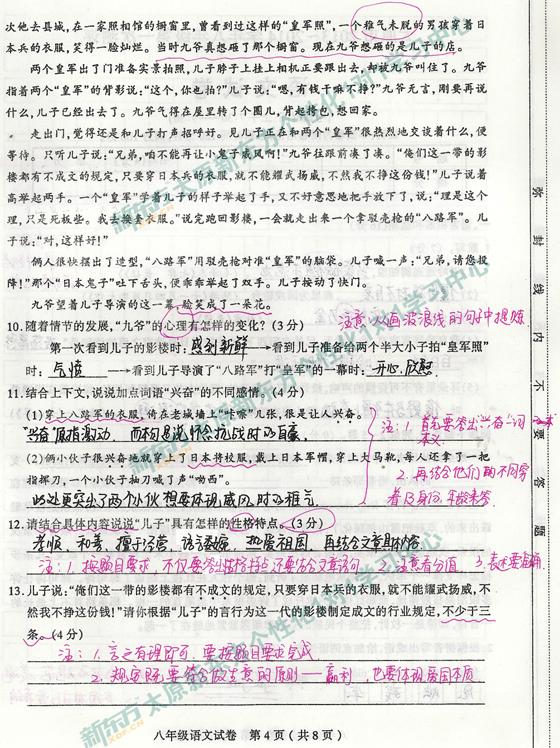 次他去县城,在一家照相馆的橱窗里,曾看到过这样的“皇军照”,一个稚气未脱的男孩穿着日
本兵的衣服,笑得一脸灿烂。当时九爷真想砸了那个橱窗。现在九爷想砸的是儿子的店。
两个皇军出了门准备实景拍照,儿子脖子上挂上相机正要跟出去,却被九爷叫住了。九爷
指着两个“皇军”的背影说:“这个,你也拍?”儿子说:“嗯,有钱干嘛不挣?”九爷无言,刚要再说
什么,儿子已经出去了。九爷气得在屋里转了个圈儿,背起搭包,想回家。
走出门,觉得还是和儿子打声招呼好。见儿子正在和两个“皇军”很热烈地交谈着什么,便
等待。只听儿子说:“兄弟,咱不能再让小鬼子威风啊!”九爷往跟前凑了凑。“俺们这一带的影
楼都有不成文的规定,只要穿日本兵的衣服,就不能耀武扬威,不然我不挣这份钱!”儿子说着
高举起两手。一个“皇军”学着儿子的样子举起了手,又不好意思地把手放下了,说:“理是这个
理,只是死板些。我去换套衣服。”说完跑回影楼,一会就走出来一个拿驳壳枪的“八路军”。儿
子说:“对,这样好!”
俩人很快摆出了造型,“八路军”用驳壳枪对准“皇军”的脑袋。儿子喊一声:“兄弟,请您投
降!”那个“日本鬼子”吐下舌头,便乖乖举起了双手。儿子按动了快门。
九爷望着儿子导演的这一幕,脸笑成了一朵花。
10.随着情节的发展,“九爷”的心理有怎样的变化?(3分)
注意从画波浪线的句子中提炼
第一次看到儿子的影楼时:感到新鲜——→看到儿子准备给两个半大小子拍“皇军照”
时:气愤——→看到儿子导演了“八路军”打“皇军”的一幕时:开心、欣慰
11.结合上下文,说说加点词语“兴奋”的不同感情。(4分)
(1)穿上八路军的衣服,倚在老城墙上“咔嚓”几张,很是让人兴奋。
“兴奋”原指激动,
(2)俩小伙子很兴奋地就穿上了日本将校服,戴上日本军帽,穿上大马靴,每人还拿了一把
指挥刀,一个小伙子抽刀喊了声“呦西”。
此处更突出了两个小伙想要体现威风时的稚气
注:1.首先要答出“兴奋”一词本义
2.再结合他们的不同穿着及身份、年龄来答
12.请结合具体内容说说“儿子”具有怎样的性格特点。(3分)
孝顺,和善,擅于经营,热爱祖国,再结合文章具体内容
注:1.按题目要求,不仅要答出性格特点还要结合文章语句 2.注意看分值 3.表述要准确
13.儿子说:“俺们这一带的影楼都有不成文的规定,只要穿日本兵的衣服,就不能耀武扬威,不
然我不挣这份钱!”请你根据“儿子”的言行为这一代的影楼制定成文的行业规定,不少于三
条。(4分)
注:1.言之有理即可,要按题目要求完成
2.规定既要符合做生意的原则——赢利,也要体现爱国本质
八年级语文试卷 第4页(共8页)
弥 封 线 内 不 要 答 题
新东方太原新东方个性化学习中心
新东方 XDF.CN